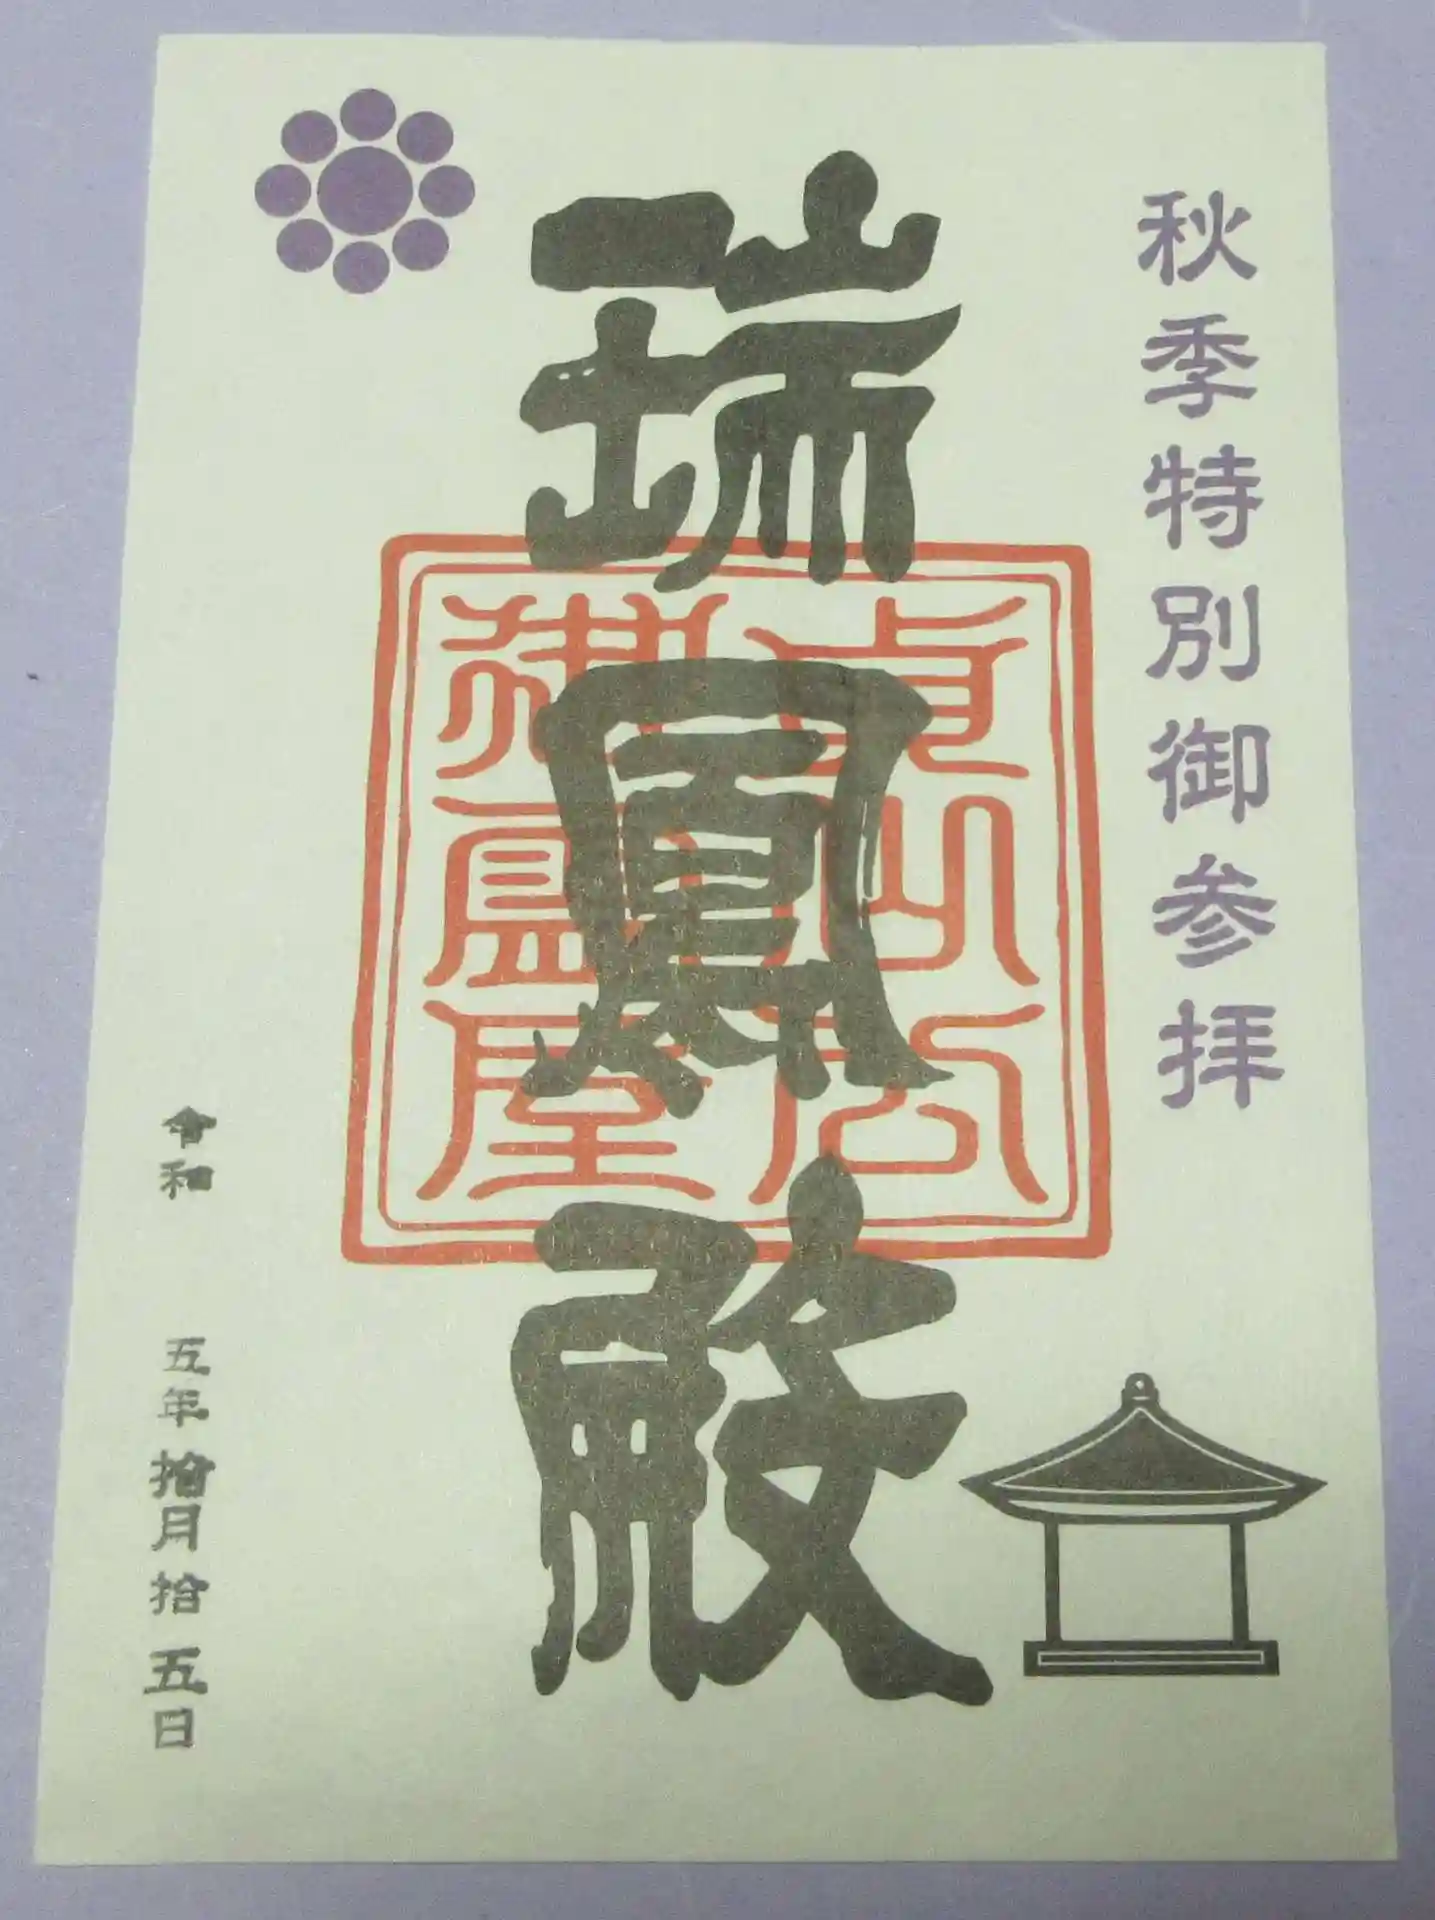 秋季特別御参拝
瑞鳳殿
貞山公
御霊屋
令和 五年 拾月 拾五日